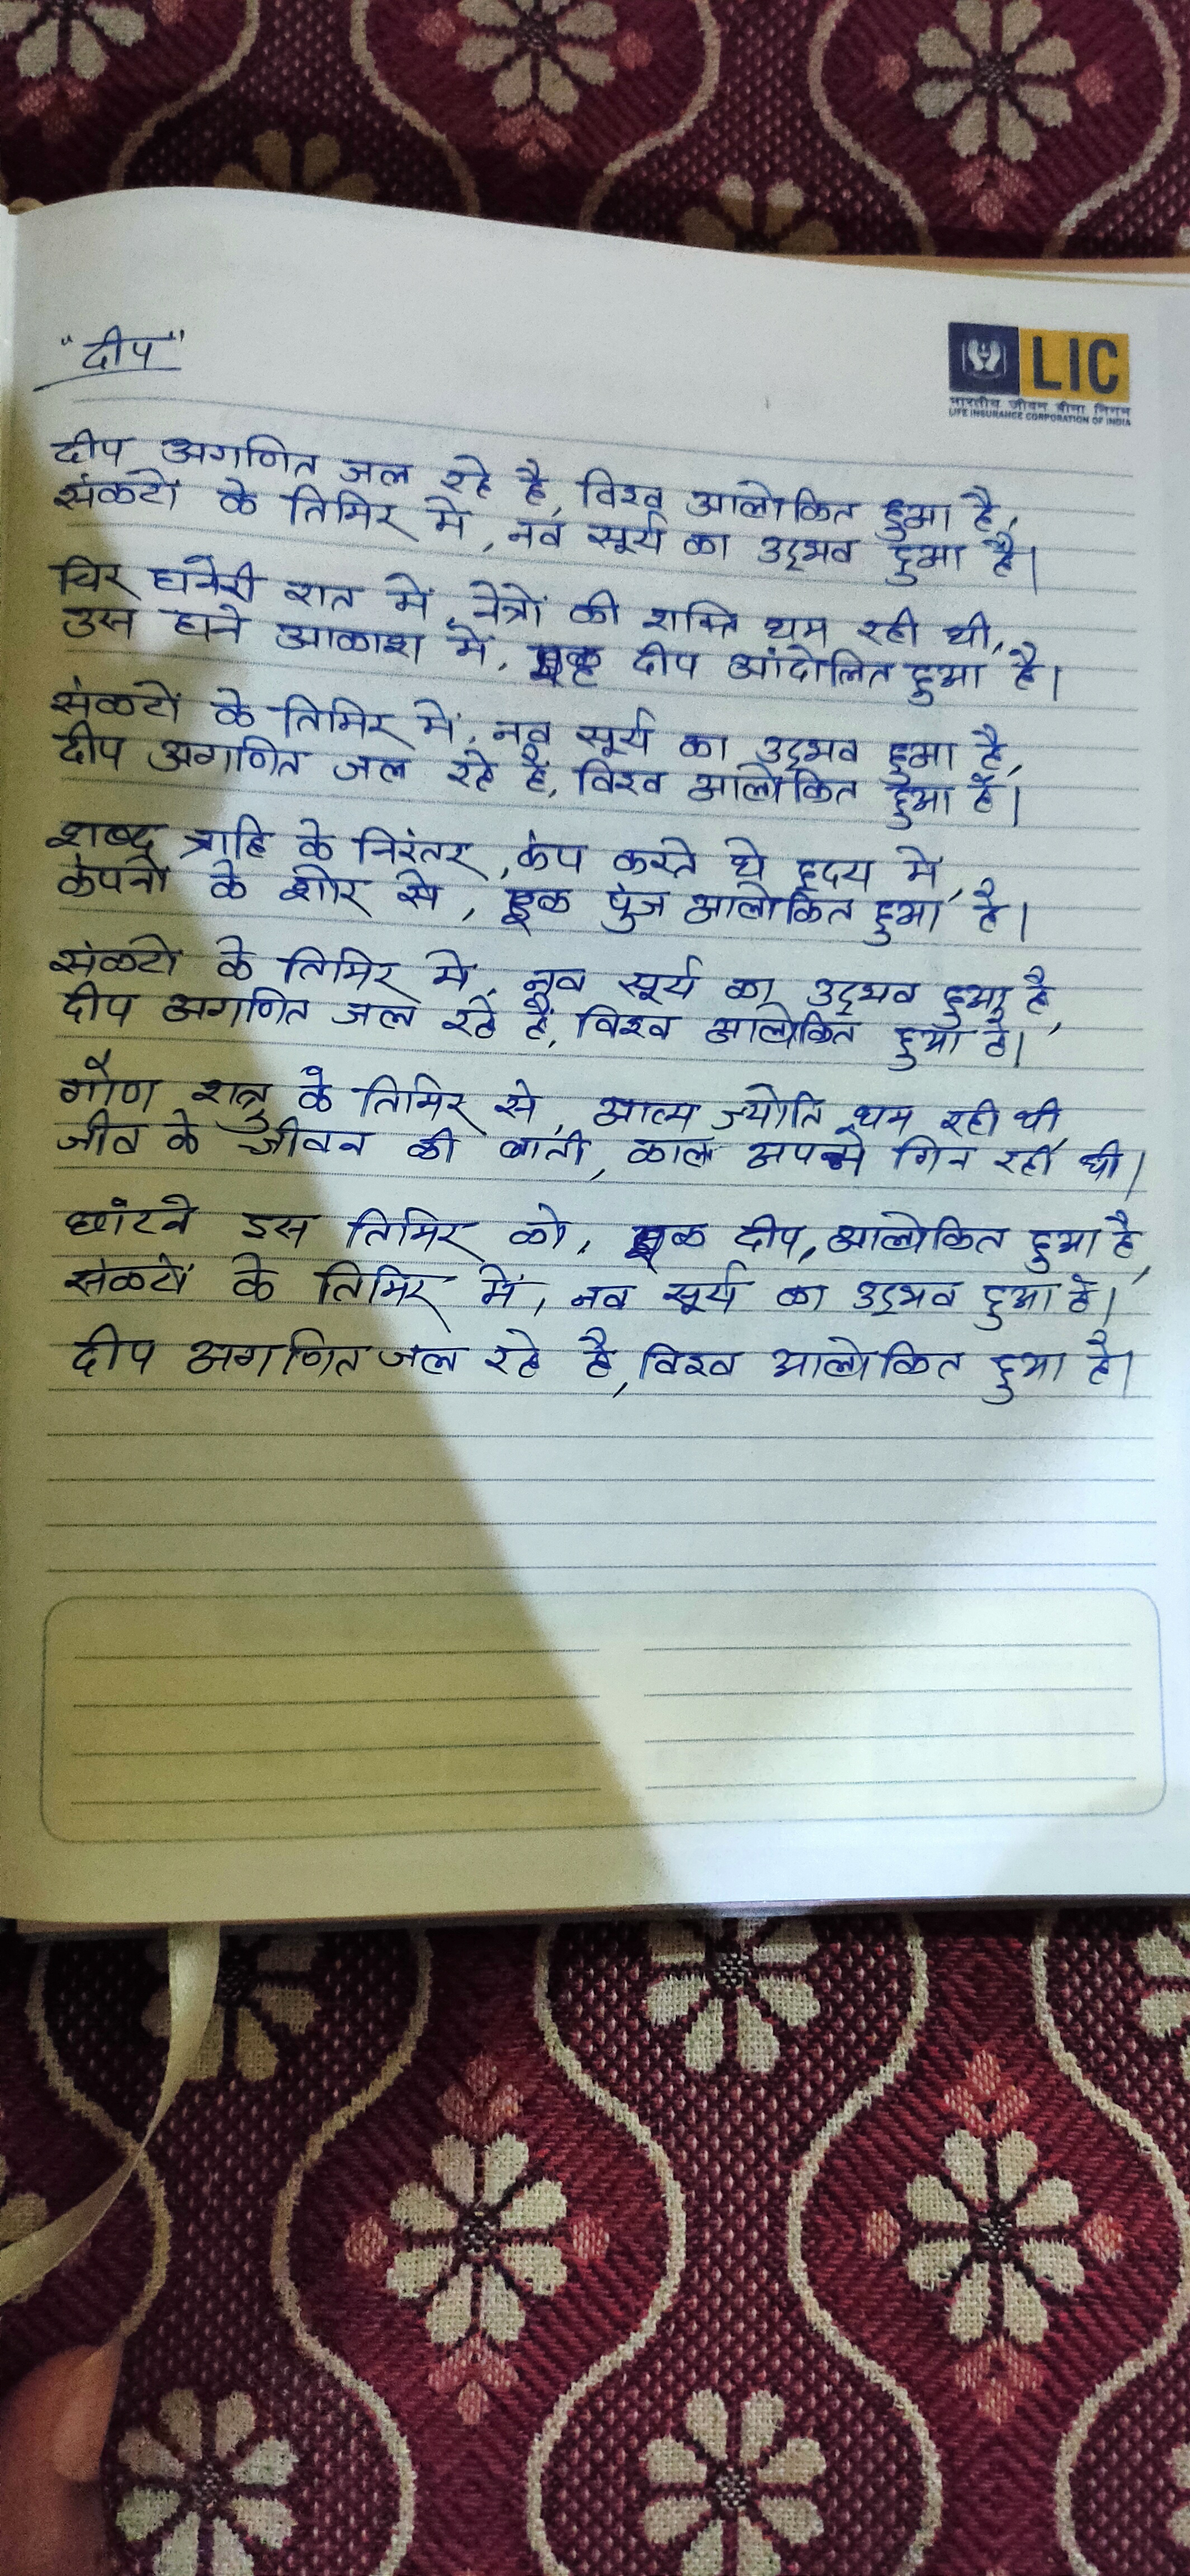 "दीप"
LIC
भारतीय जीवन बीमा निगम
LIFE INSURANCE CORPORATION OF INDIA
दीप अगणित जल रहे है, विश्व आलोकित हुआ है,
संकटों के तिमिर में, नव सूर्य का उद्भव हुआ है।
चिर घनेरी रात में, नेत्रों की शक्ति थम रही थी,
उस घने आकाश में, एक दीप आंदोलित हुआ है।
संकटों के तिमिर में, नव सूर्य का उद्भव हुआ है,
दीप अगणित जल रहे हैं, विश्व आलोकित हुआ है।
शब्द त्राहि के निरंतर, कंप करते थे हृदय में,
कंपनों के शोर से, एक पुंज आलोकित हुआ है।
संकटों के तिमिर में, नव सूर्य का उद्भव हुआ है,
दीप अगणित जल रहे हैं, विश्व आलोकित हुआ है।
गौण शत्रु के तिमिर से, आत्म ज्योति थम रही थी,
जीव के जीवन की बाती, काल अपने गिन रही थी।
छांटने इस तिमिर को, एक दीप, आलोकित हुआ है,
संकटों के तिमिर में, नव सूर्य का उद्भव हुआ है।
दीप अगणित जल रहे है, विश्व आलोकित हुआ है।